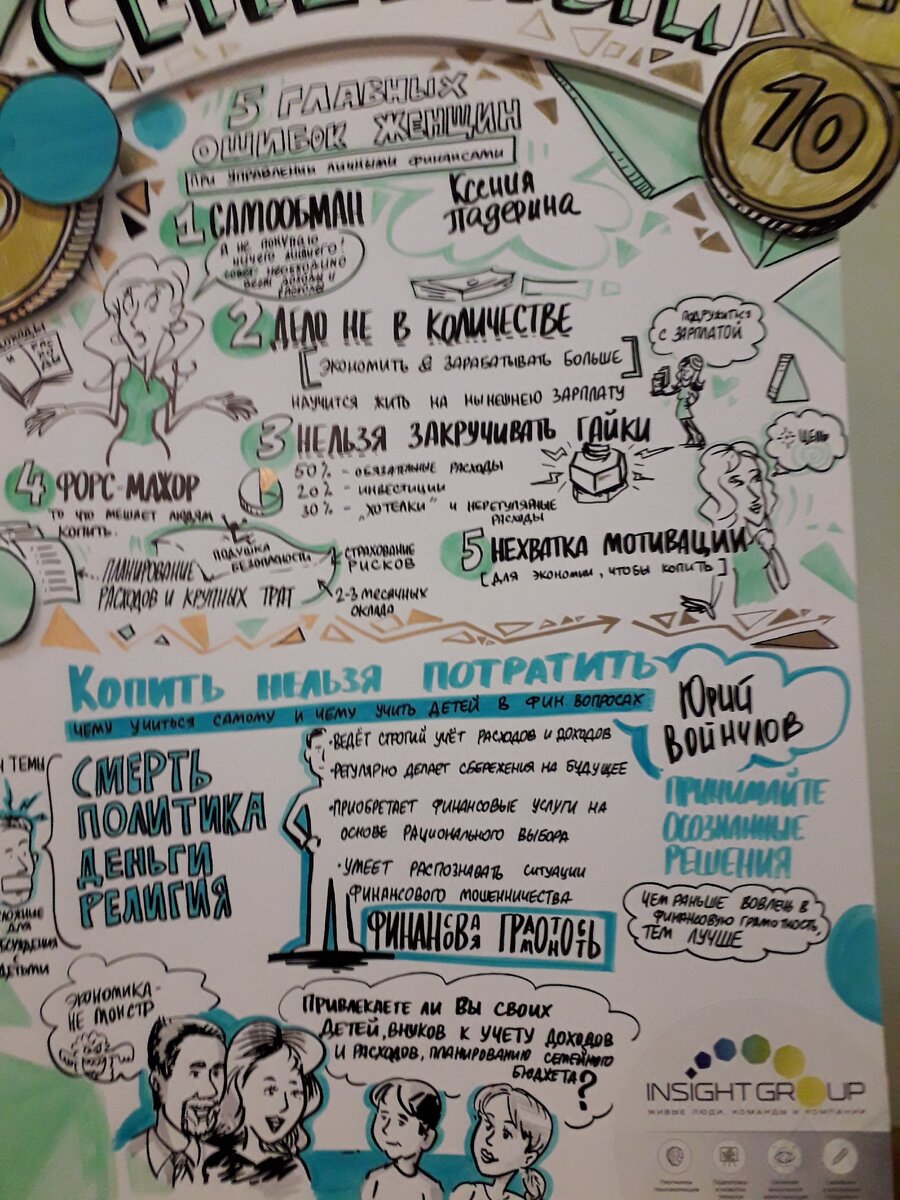 10
5 ГЛАВНЫХ
ОШИБОК ЖЕНЩИН
ПРИ УПРАВЛЕНИИ ЛИЧНЫМИ ФИНАНСАМИ
Ксения
Падерина
1 САМООБМАН
Я НЕ ПОКУПАЮ
НИЧЕГО ЛИШНЕГО!
СОВЕТ НЕОБХОДИМО
ВЕСТИ ДОХОДЫ И
РАСХОДЫ
ДОХОДЫ
И РАСХОДЫ
2 ДЕЛО НЕ В КОЛИЧЕСТВЕ
[ЭКОНОМИТЬ & ЗАРАБАТЫВАТЬ БОЛЬШЕ]
НАУЧИТСЯ ЖИТЬ НА НЫНЕШНЕЮ ЗАРПЛАТУ
ПОДРУЖИТЬСЯ
С ЗАРПЛАТОЙ
3 НЕЛЬЗЯ ЗАКРУЧИВАТЬ ГАЙКИ
50% - ОБЯЗАТЕЛЬНЫЕ РАСХОДЫ
20% - ИНВЕСТИЦИИ
30% - „ХОТЕЛКИ" И НЕРЕГУЛЯЙНЫЕ
РАСХОДЫ
ЦЕЛЬ
4 ФОРС-МАЖОР
ТО ЧТО МЕШАЕТ ЛЮДЯМ
КОПИТЬ.
ПОДУШКА
БЕЗОПАСНОСТЬ
ПЛАНИРОВАНИЕ
РАСХОДОВ И КРУПНЫХ ТРАТ
СТРАХОВАНИЕ
РИСКОВ
2-3 МЕСЯЧНЫХ
ОКЛАДА
5 НЕХВАТКА МОТИВАЦИИ
[ДЛЯ ЭКОНОМИИ, ЧТОБЫ КОПИТЬ]
КОПИТЬ НЕЛЬЗЯ ПОТРАТИТЬ
ЧЕМУ УЧИТЬСЯ САМОМУ И ЧЕМУ УЧИТЬ ДЕТЕЙ В ФИН ВОПРОСАХ
Юрий
Войнилов
ТЕМЫ
СМЕРТЬ
ПОЛИТИКА
ДЕНЬГИ
РЕЛИГИЯ
ДЛЯ
ДЕТЬМИ
·ВЕДЁТ СТРОГИЙ УЧЁТ РАСХОДОВ И ДОХОДОВ
·РЕГУЛЯРНО ДЕЛАЕТ СБЕРЕЖЕНИЯ НА БУДУЩЕЕ
·ПРИОБРЕТАЕТ ФИНАНСОВЫЕ УСЛУГИ НА
ОСНОВЕ РАЦИОНАЛЬНОГО ВЫБОРА
·УМЕЕТ РАСПОЗНАВАТЬ СИТУАЦИИ
ФИНАНСОВОГО МОШЕННИЧЕСТВА
ФИНАНСОВАЯ ГРАМОТНОСТЬ
ПРИНИМАЙТЕ
ОСОЗНАННЫЕ
РЕШЕНИЯ
ЧЕМ РАНЬШЕ ВОВЛЕЧЬ В
ФИНАНСОВУЮ ГРАМОТНОСТЬ,
ТЕМ ЛУЧШЕ
ЭКОНОМИКА-
НЕ МОНСТР
ПРИВЛЕКАЕТЕ ЛИ ВЫ СВОИХ
ДЕТЕЙ, ВНУКОВ К УЧЕТУ ДОХОДОВ
И РАСХОДОВ, ПЛАНИРОВАНИЮ СЕМЕЙНОГО
БЮДЖЕТА?
INSIGHT GROUP
ЖИВЫЕ ЛЮДИ, КОМАНДЫ И КОМПАНИИ